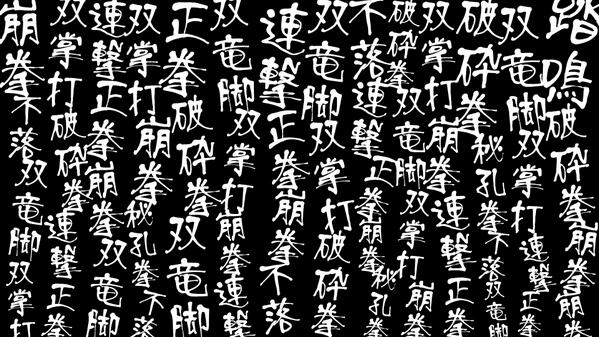 踏鳴破砕拳崩拳崩拳
双竜脚双掌打連撃正拳
破砕拳秘孔拳不落双竜脚
双掌打崩拳連撃正拳
破砕拳双竜脚双掌打崩拳
不落連撃正拳崩拳秘孔拳
双竜脚双掌打破砕拳
連撃正拳崩拳不落
双竜脚双掌打崩拳連撃
正拳破砕拳双竜脚
双掌打崩拳秘孔拳不落
連撃正拳崩拳双竜脚
双掌打破砕拳連撃正拳
崩拳不落双竜脚双掌打